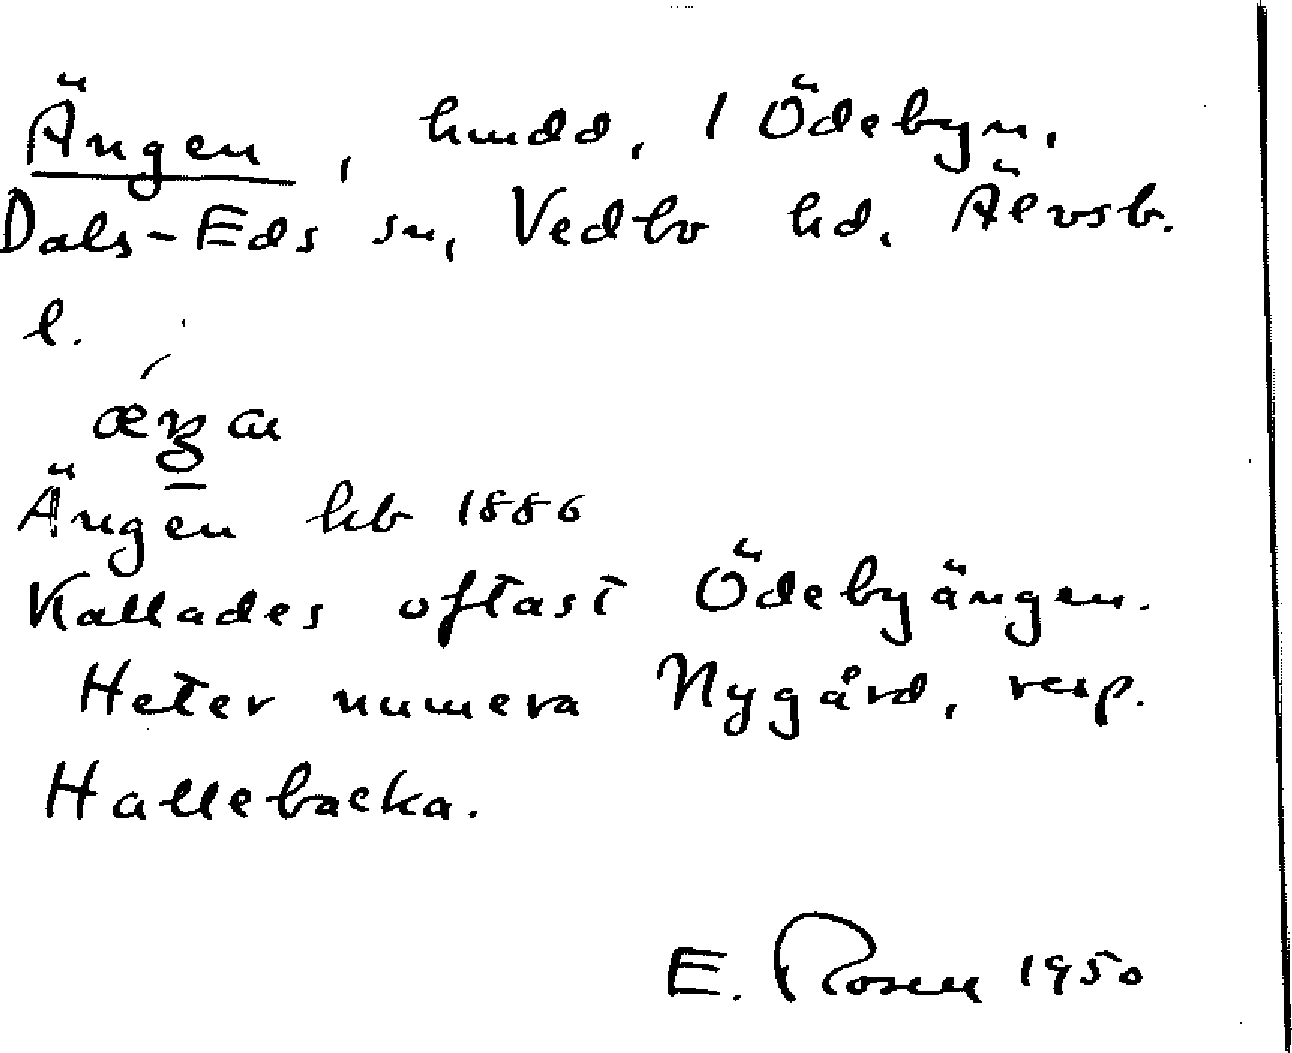 Ängen, hmdd, 1 Ödebyn,
Dals-Eds sn, Vedbo hd. Älvsb.
l.
Ängen hb 1886
Kallades oftast Ödebyängen.
Heter numera Nygård, resp.
Hallebacka.
E. Rosen 1950